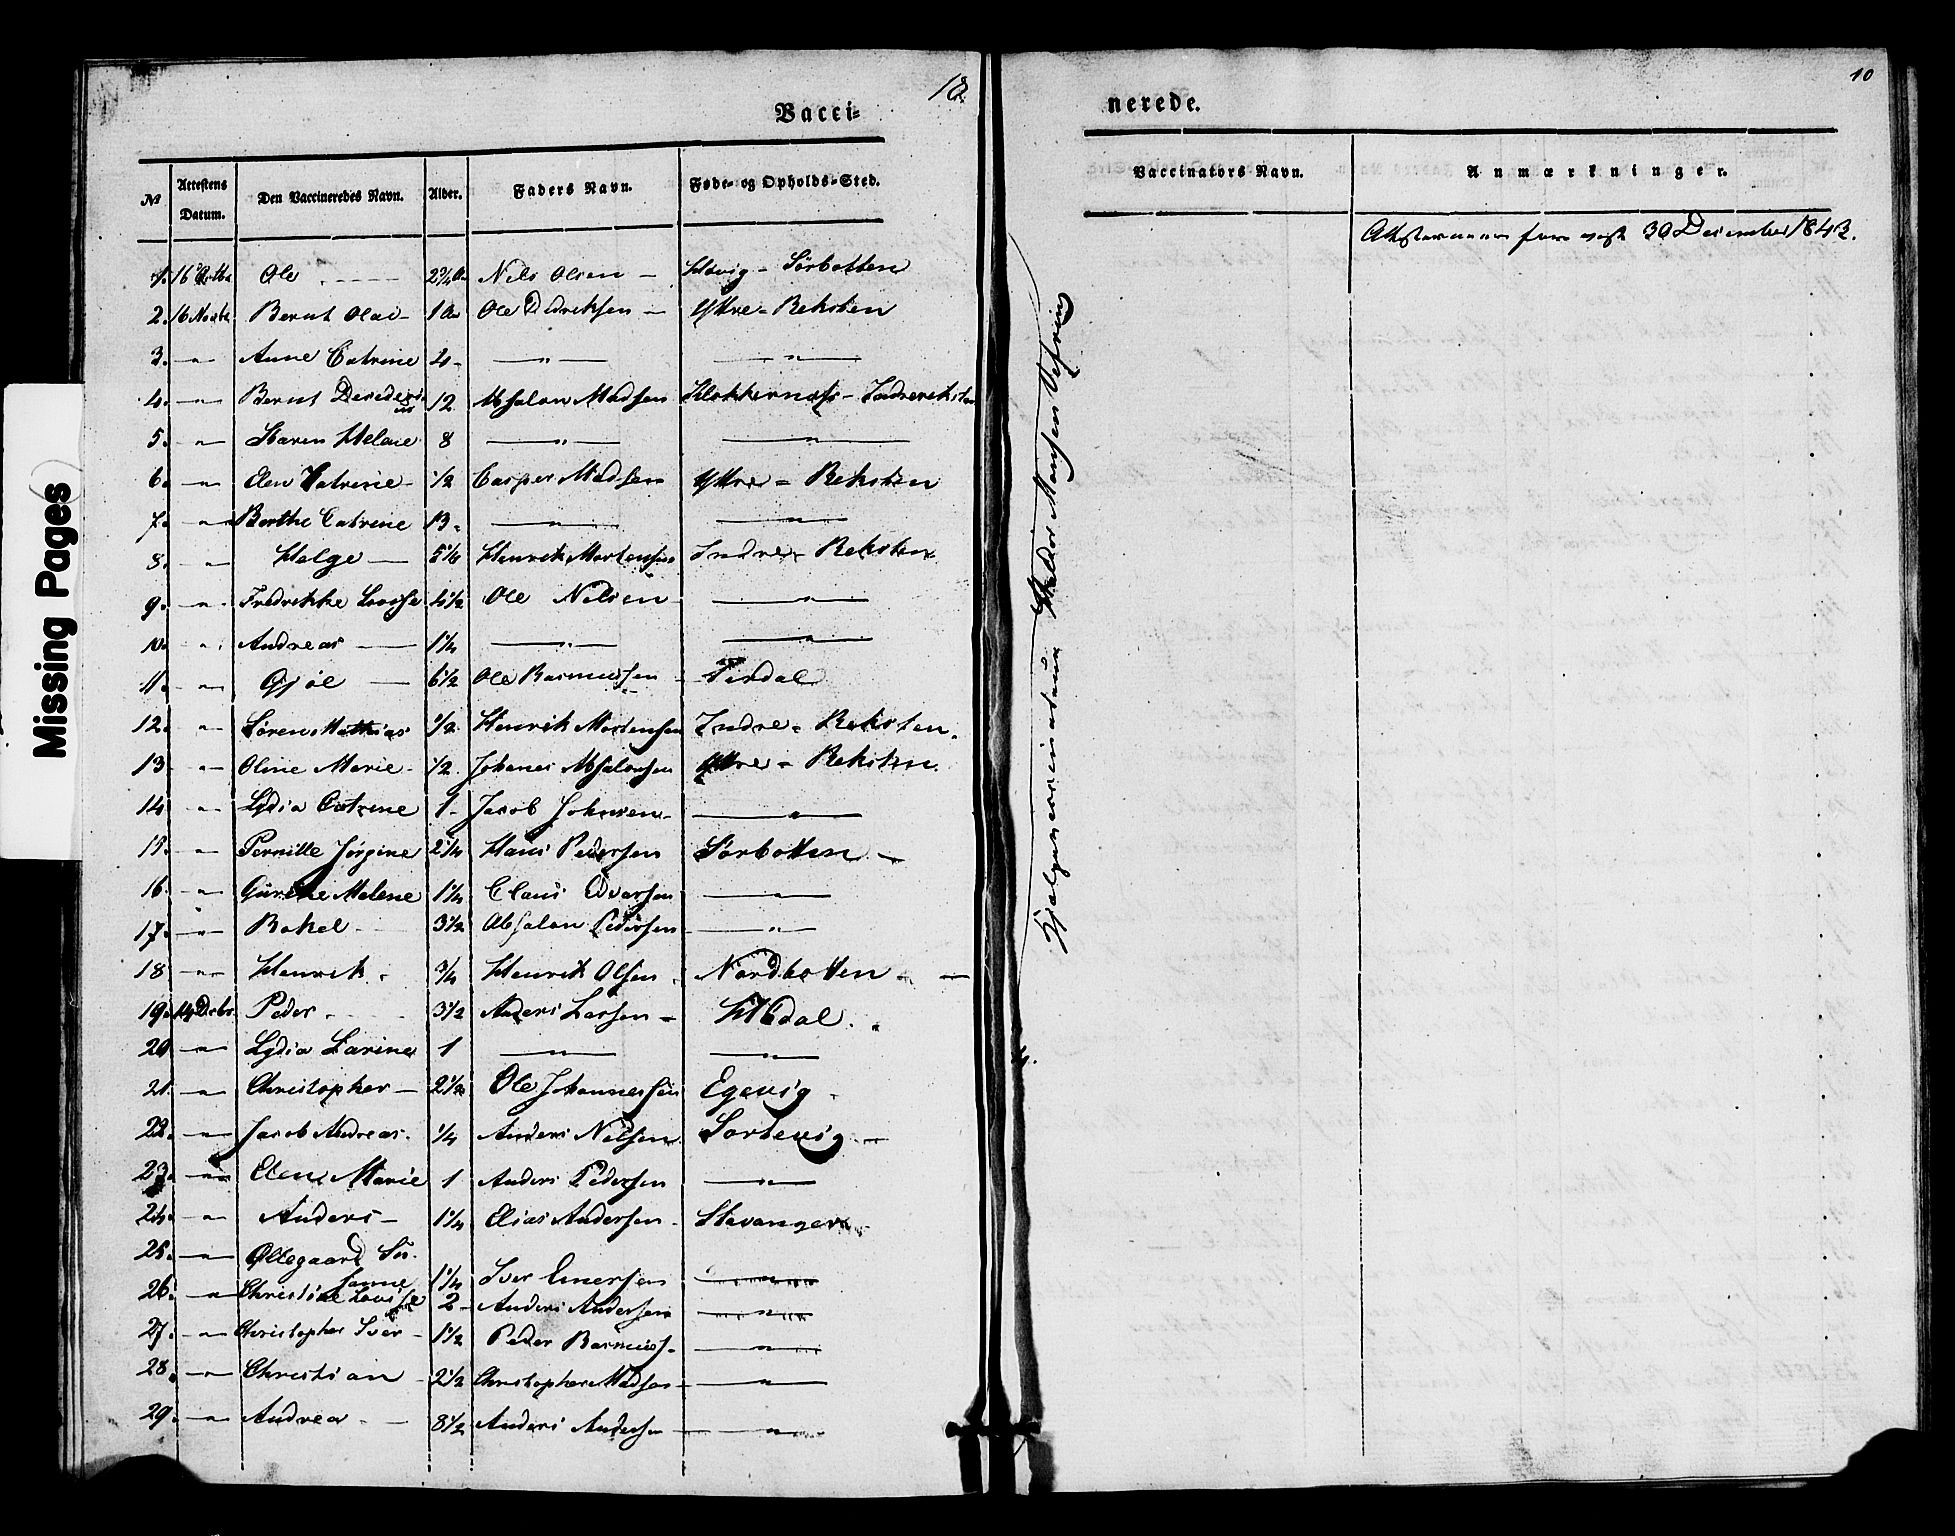 18
Vacci-
№ Attestens Datum. Den Vaccineredes Navn. Alder. Faders Navn. Føde- og Opholds-Sted.
1. 16 Ole 2¾ Nils Olsen - - Sørbotten
2. 16 Novbr. Bernt Olai - 1 Ole Didriksen - Yttre - Reksten
3. " Anne Catrine 4 - " "
4. " Bernt 12 Absalon Madsen Klokkernæss - Indrereksten
5. " Karen Helene 8 " "
6. " Elen Katrine - 1/2 Casper Madsen Yttre - Reksten
7. " Berthe Catrine 13. " "
8. " Helge - 5 1/6 Henrik Mortensen Indre - Reksten
9. " Fredrikke Lovise 4 1/2 Ole Nilsen "
10. " Andreas - 1 1/4 " "
11. " Gjøl - 6 1/2 Ole Rasmussen -
12. " Søren Mathias 1/2 Henrik Mortensen Indre - Reksten.
13. " Oline Marie - 1/2 Johanes Absalonsen Yttre - Reksten.
14. " Lydia Catrine 1 - Jacob Johnsen - "
15. " Pernille Jørgine 2 1/4 Hans Pedersen Sørbotten -
16. " Malene 1 1/4 Claus "
17. " Rakel 3 1/2 Absalon Pedersen "
18. " Henrik. 3/4 Henrik Olsen Nordbotten -
19. 14 Decbr. Peder - 3 1/2 Anders Larsen -
20. " Lydia Larine 1 " "
21. " Christopher - 2 1/2 Ole Johannessen Egevig
22. " Jacob Andreas. 1/4 Anders Nilsen Sortevig -
23. " Elen Marie 1 Anders Pedersen "
24. " Anders - 1 1/4 Elias Andersen - Stavanger
25. " Ollegaard
Sanne 1 1/4 Iver Einersen "
26. " Christine Lovise 2 - Anders Andersen "
27. " Christopher Iver - 1 1/2 Peder Rasmuss. "
28. " Christian 2 1/2 Christopher Madsen "
29. " Andrea - 8 1/2 Anders Andersen "
Missing Pages
10
nerede.
Vaccinators Navn. Anmærkninger.
30 December 1843.
Hjælpevaccinateur Monsen